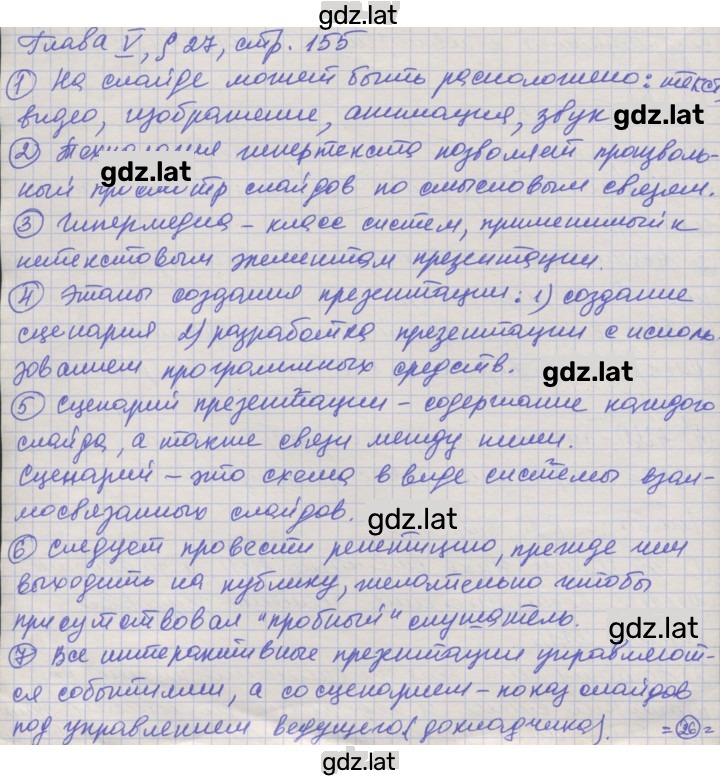 gdz.lat
Глава V, § 27, стр. 155
① На слайде может быть расположено: текст
видео, изображение, анимация, звук gdz.lat
② Технология гипертекста позволяет произволь-
gdz.lat
ный просмотр слайдов по смысловым связям.
③ Гипермедиа – класс систем, применимый к
нетекстовым элементам презентации.
④ Этапы создания презентации: 1) создание
сценария 2) разработка презентации с исполь-
зованием программных средств. gdz.lat
⑤ Сценарий презентации – содержание каждого
слайда, а также связи между ними.
Сценарий – это схема в виде системы взаи-
мосвязанных слайдов. gdz.lat
⑥ Следует провести репетицию, прежде чем
выходить на публику, желательно чтобы
присутствовал "пробный" слушатель.
gdz.lat
⑦ Все интерактивные презентации управляют-
ся событиями, а со сценарием – показ слайдов
под управлением ведущего (докладчика). =26=
gdz.lat